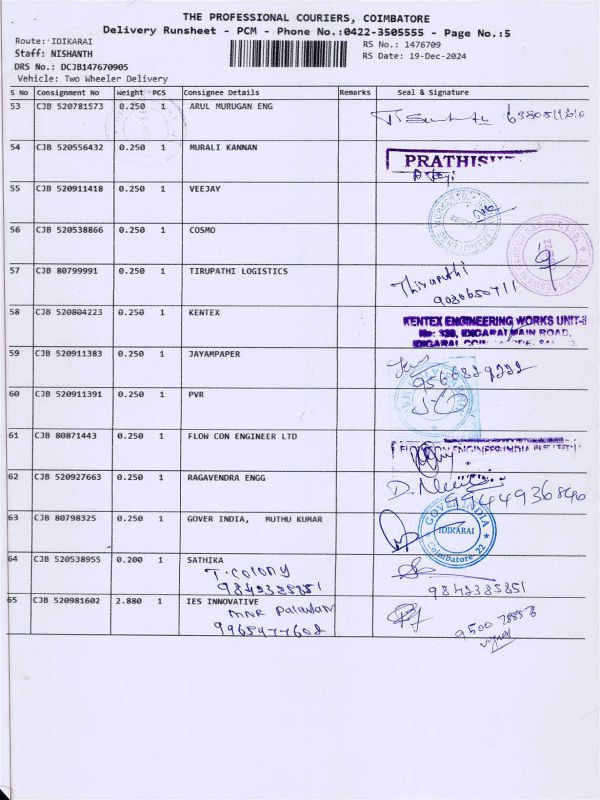 THE PROFESSIONAL COURIERS, COIMBATORE
Delivery Runsheet - PCM - Phone No.:0422-3505555 - Page No.:5
Route: IDIKARAI
RS No.: 1476709
Staff: NISHANTH
RS Date: 19-Dec-2024
DRS No.: DCJB147670905
Vehicle: Two Wheeler Delivery
S No Consignment No Weight PCS Consignee Details Remarks Seal & Signature
53 CJB 520781573 0.250 1 ARUL MURUGAN ENG
54 CJB 520556432 0.250 1 MURALI KANNAN
55 CJB 520911418 0.250 1 VEEJAY
56 CJB 520538866 0.250 1 COSMO
57 CJB 80799991 0.250 1 TIRUPATHI LOGISTICS
Thirupathi
58 CJB 520804223 0.250 1 KENTEX KENTEX ENGINEERING WORKS UNIT-II
IDIGARAI MAIN ROAD,
59 CJB 520911383 0.250 1 JAYAMPAPER
9566829222
60 CJB 520911391 0.250 1 PVR
61 CJB 80871443 0.250 1 FLOW CON ENGINEER LTD
62 CJB 520927663 0.250 1 RAGAVENDRA ENGG
9944936840
63 CJB 80798325 0.250 1 GOVER INDIA, MUTHU KUMAR GOVER INDIA
IDIKARAI
Coimbatore-22
64 CJB 520538955 0.200 1 SATHIKA
T. COLONY
9842385851 9842385851
65 CJB 520981602 2.880 1 IES INNOVATIVE
MNR Paladan
9965977602